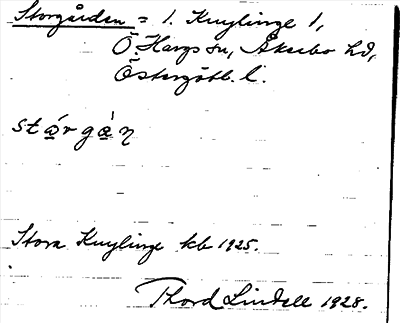 Storgården = 1. Knylinge 1,
Ö. Hargs sn, Åkerbo hd,
Östergötl. l.
stárgàn
Stora Knylinge kb 1925.
Thord Lindell 1928.